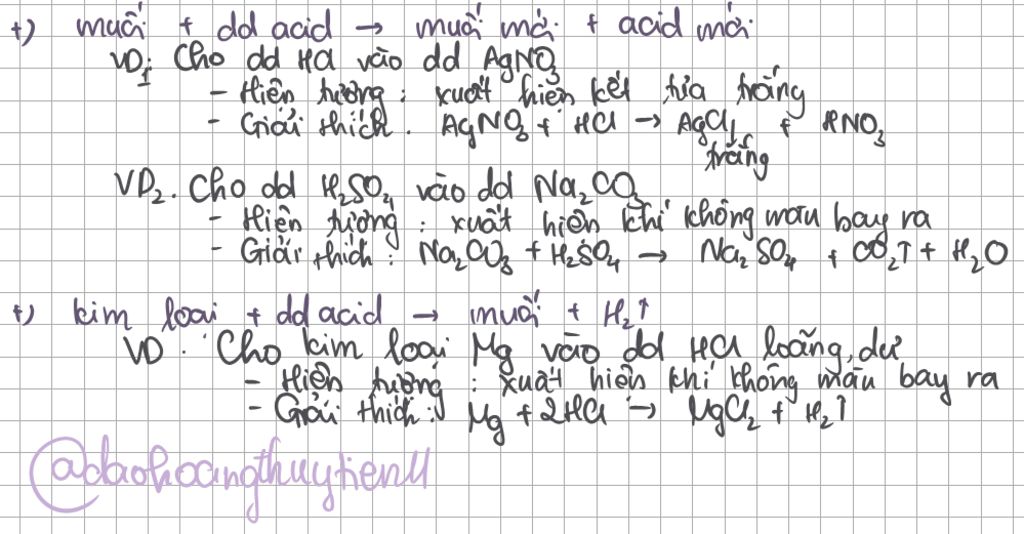 +) muối + dd acid → muối mới + acid mới
VD1: Cho dd HCl vào dd AgNO3
- Hiện tượng: xuất hiện kết tủa trắng
- Giải thích: AgNO3 + HCl → AgCl↓ + HNO3
trắng
VD2: Cho dd H2SO4 vào dd Na2CO3
- Hiện tượng: xuất hiện khí không màu bay ra
- Giải thích: Na2CO3 + H2SO4 → Na2SO4 + CO2↑ + H2O
+) kim loại + dd acid → muối + H2↑
VD: Cho kim loại Mg vào dd HCl loãng, dư
- Hiện tượng: xuất hiện khí không màu bay ra
- Giải thích: Mg + 2HCl → MgCl2 + H2↑
@daohoangthuytien11